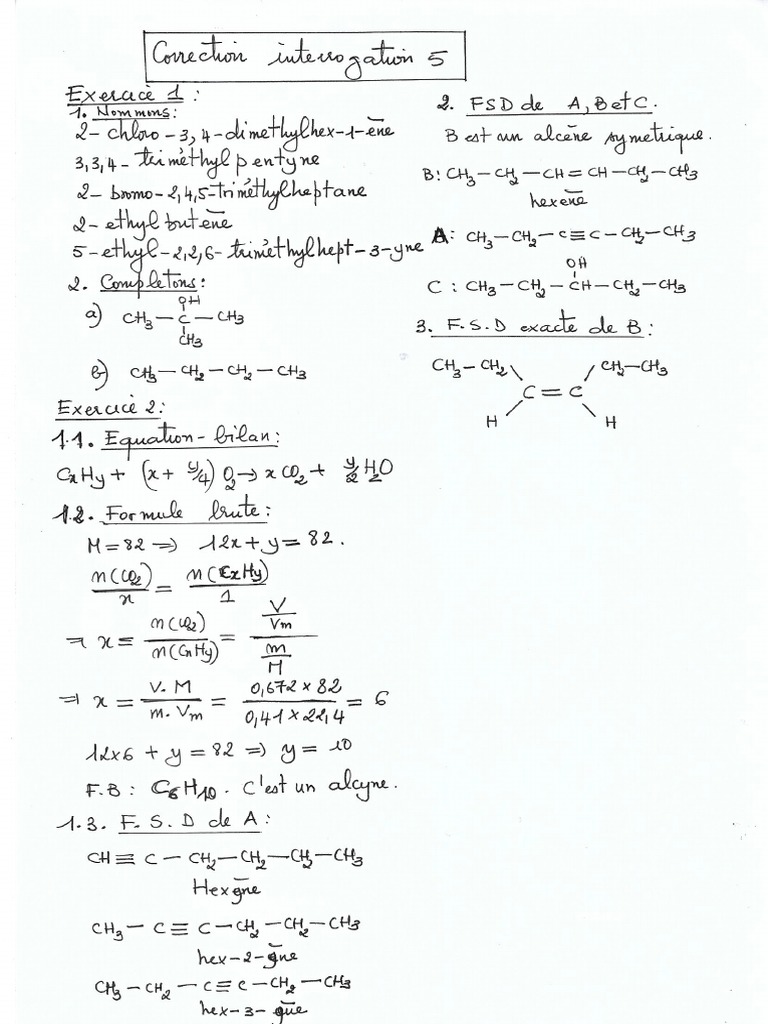 Correction interrogation 5
Exercice 1 :
1. Nommons:
2- chloro-3,4-diméthylhex-1-ène
3,3,4- triméthylpentyne
2- bromo-2,4,5-triméthylheptane
2- éthylbutène
5-éthyl-2,2,6-triméthylhept-3-yne
2. Complétons:
a) CH3 — C — CH3
OH
CH3
b) CH3 — CH2 — CH2 — CH3
Exercice 2:
1.1. Equation-bilan:
CxHy + (x + y/4) O2 → x CO2 + y/2 H2O
1.2. Formule brute:
M = 82 ⇒ 12x + y = 82.
n(CO2)/x = n(CxHy)/1
⇒ x = n(CO2)/n(CxHy) = (V/Vm)/(m/M)
⇒ x = V.M/m.Vm = 0,672 × 82/0,41 × 22,4 = 6
12x6 + y = 82 ⇒ y = 10
F.B : C6H10. C'est un alcyne.
1.3. F.S.D de A :
CH ≡ C — CH2 — CH2 — CH2 — CH3
Hexyne
CH3 — C ≡ C — CH2 — CH2 — CH3
hex-2-yne
CH3 — CH2 — C ≡ C — CH2 — CH3
hex-3-yne
2. FSD de A, B et C.
B est un alcène symetrique.
B: CH3 — CH2 — CH = CH — CH2 — CH3
hexène
A: CH3 — CH2 — C ≡ C — CH2 — CH3
OH
C : CH3 — CH2 — CH — CH2 — CH3
3. F.S.D exacte de B :
CH3 — CH2 CH2 — CH3
C = C
H H